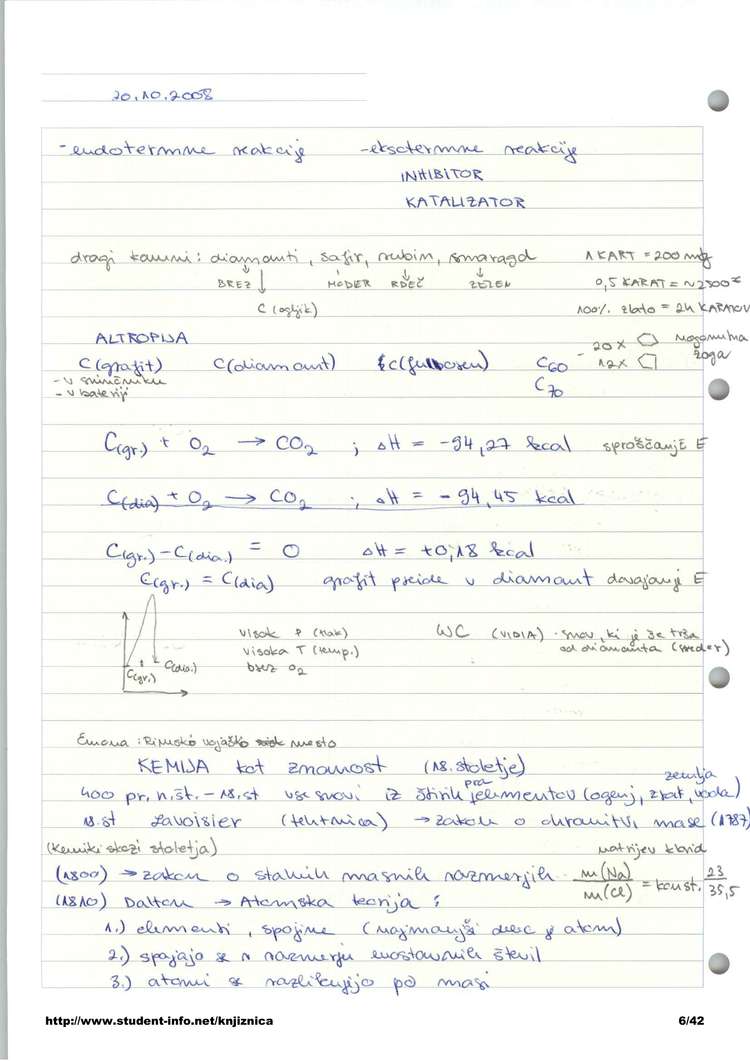 20.10.2008
- endotermne reakcije - eksotermne reakcije
INHIBITOR
KATALIZATOR
dragi kamni: diamanti, safir, rubin, smaragd 1 KART = 200 mg
BREZ MODER RDEČ ZELEN 0,5 KARAT = ~2500 €
C (ogljik) 100% zlato = 24 KARATOV
ALTROPIJA
C(grafit) C(diamant) C(fulleren) C60 - 20x nogometna
- v svinčniku C70 12x žoga
- v bateriji
C(gr.) + O2 → CO2 ; ΔH = -94,27 kcal sproščanje E
C(dia) + O2 → CO2 ; ΔH = -94,45 kcal
C(gr.) - C(dia.) = 0 ΔH = +0,18 kcal
C(gr.) = C(dia) grafit preide v diamant dovajanje E
visok P (tlak) WC (VIDIA) - snov, ki je še trša
visoka T (temp.) od diamanta (sveder)
brez O2
C(gr.) C(dia.)
Emona: Rimsko vojaško mesto
KEMIJA kot znanost (18. stoletje)
400 pr.n.št. - 18.st vse snovi iz štirih pra elementov (ogenj, zrak, voda) zemlja
18.st Lavoisier (tehtnica) → zakon o ohranitvi mase (1787)
(Kemiki skozi stoletja) natrijev klorid
(1800) → zakon o stalnih masnih razmerjih m(Na)/m(Cl) = konst. 23/35,5
(1810) Dalton → Atomska teorija:
1.) elementi, spojine (najmanjši delec je atom)
2.) spajajo se v razmerju enostavnih števil
3.) atomi se razlikujejo po masi
http://www.student-info.net/knjiznica 6/42